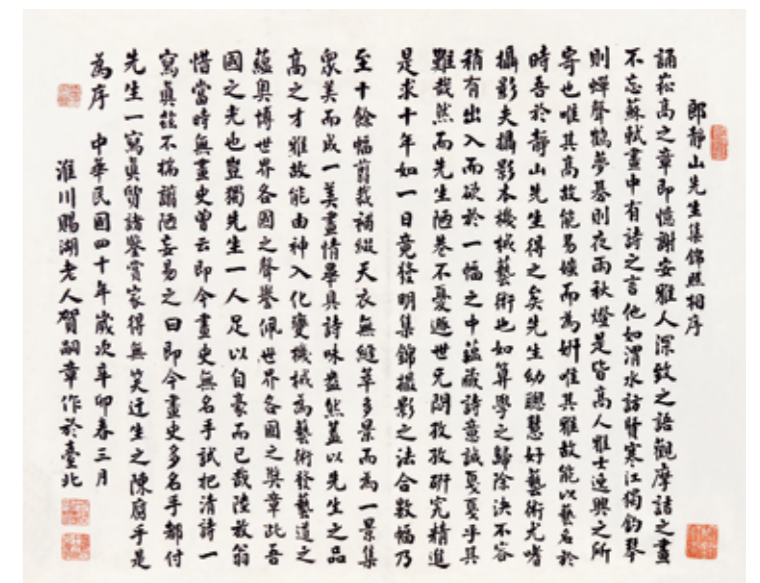 郎靜山先生集錦照相序
誦崧高之章即憶謝安雅人深致之語觀摩詰之畫
不忘蘇軾畫中有詩之言他如渭水訪賢寒江獨釣琴
則蟬聲鶴夢碁則夜雨秋燈是皆高人雅士逸興之所
寄也唯其高故能易媸而為妍唯其雅故能以藝名於
時吾於靜山先生得之矣先生幼聰慧好藝術尤嗜
攝影夫攝影本機械藝術也如算學之歸除決不容
稍有出入而欲於一幅之中蘊藏詩意誠戛戛乎其
難哉然而先生陋巷不憂遯世无悶孜孜硏究精進
是求十年如一日竟發明集錦攝影之法合數幅乃
至十餘幅剪裁補綴天衣無縫萃多景而為一景集
衆美而成一美畫情畢具詩味盎然蓋以先生之品
高之才雅故能由神入化變機械為藝術發藝道之
蘊奥博世界各國之聲譽佩世界各國之奬章此吾
國之光也豈獨先生一人足以自豪而已哉陸放翁
惜當時無畫史曾云即今畫史無名手試把清詩一
寫真茲不揣譾陋妄易之曰即今畫史多名手都付
先生一寫真質諸鑒賞家得無笑迂生之陳腐乎是
為序 中華民國四十年歲次辛卯春三月
淮川賜湖老人賀嗣章作於臺北